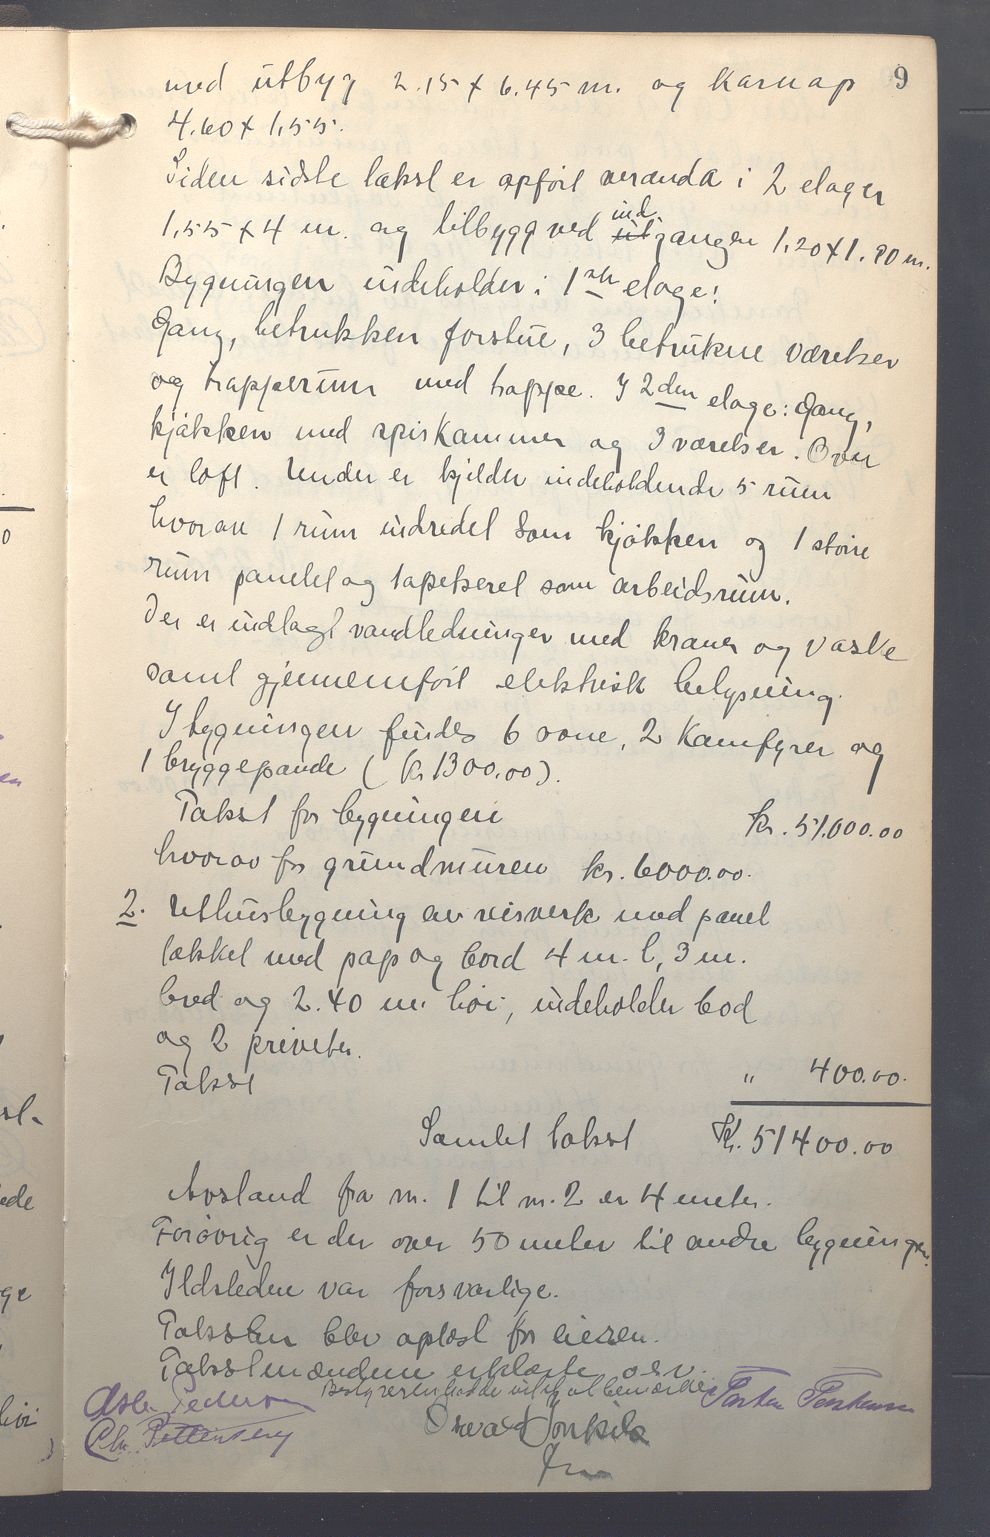 9
med utbyg 2.15 x 6.45 m. og karnap
4.60 x 1,55.
Siden sidste takst er opført veranda i 2 etager
1,55 x 4 m. og tilbygg ved ut ind gangen 1,20 x 1.80 m.
Bygningen indeholder i 1ste etage:
Gang, betrukken forstue, 3 betrukne værelser
og trapperum med trappe. I 2den etage: Gang,
kjøkken med spiskammer og 3 værelser. Over
er loft. Under er kjelder indeholdende 5 rum
hvorav 1 rum indredet som kjøkken og 1 større
rum panelet og tapetseret som arbeidsrum.
Der er indlagt vandledninger med kraner og vaske
samt gjennemført elektrisk belysning.
I bygningen findes 6 ovne, 2 Kamfyrer og
1 bryggepande (kr. 1300.00).
Takst for bygningen kr. 51.000.00
hvorav for grundmuren kr. 6000.00.
2. Uthusbygning av reisverk med panel
tækket med pap og bord 4 m. l, 3 m.
bred og 2.40 m. høi, indeholder bod
og 2 priveter.
Takst " 400.00.
Samlet takst Kr. 51400.00
Avstand fra nr. 1 til nr. 2 er 4 meter.
Forøvrig er der over 50 meter til andre bygninger.
Ildstedene var forsvarlige.
Taksten blev oplæst for eieren.
Takstmændene erklærte o.s.v.
Bestyreren hadde intet at bemærke
Pedersen
Chr.